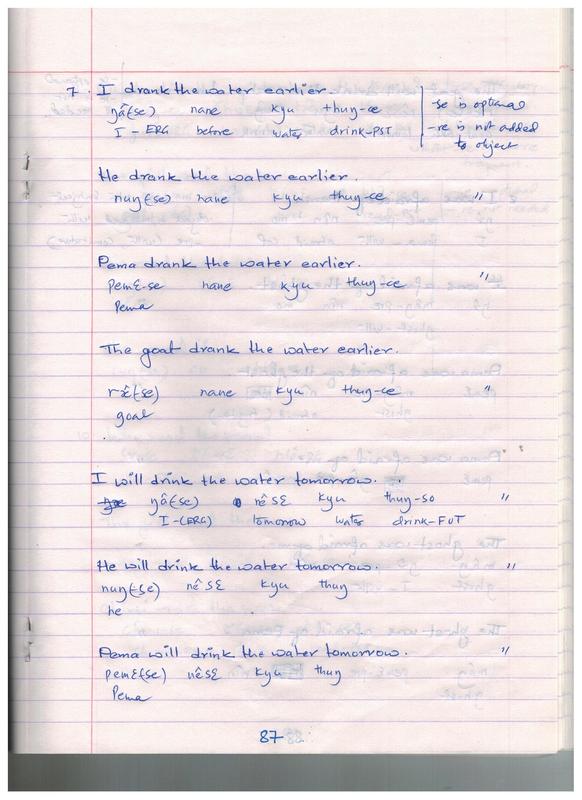 7. I drank the water earlier.
ŋâ(se) nane kyu thuŋ-ce
I-ERG before water drink-PST
-se is optional
-re is not added
to object
He drank the water earlier.
nuŋ(se) nane kyu thuŋ-ce "
Pema drank the water earlier.
pemɛ-se nane kyu thuŋ-ce "
Pema
The goat drank the water earlier.
(se) nane kyu thuŋ-ce "
goat
I will drink the water tomorrow.
ŋâ(se) nêsɛ kyu thuŋ-so "
I-(ERG) tomorrow water drink-FUT
He will drink the water tomorrow. "
nuŋ(se) nêsɛ kyu thuŋ
he
Pema will drink the water tomorrow. "
pemɛ(se) nêsɛ kyu thuŋ
Pema
87